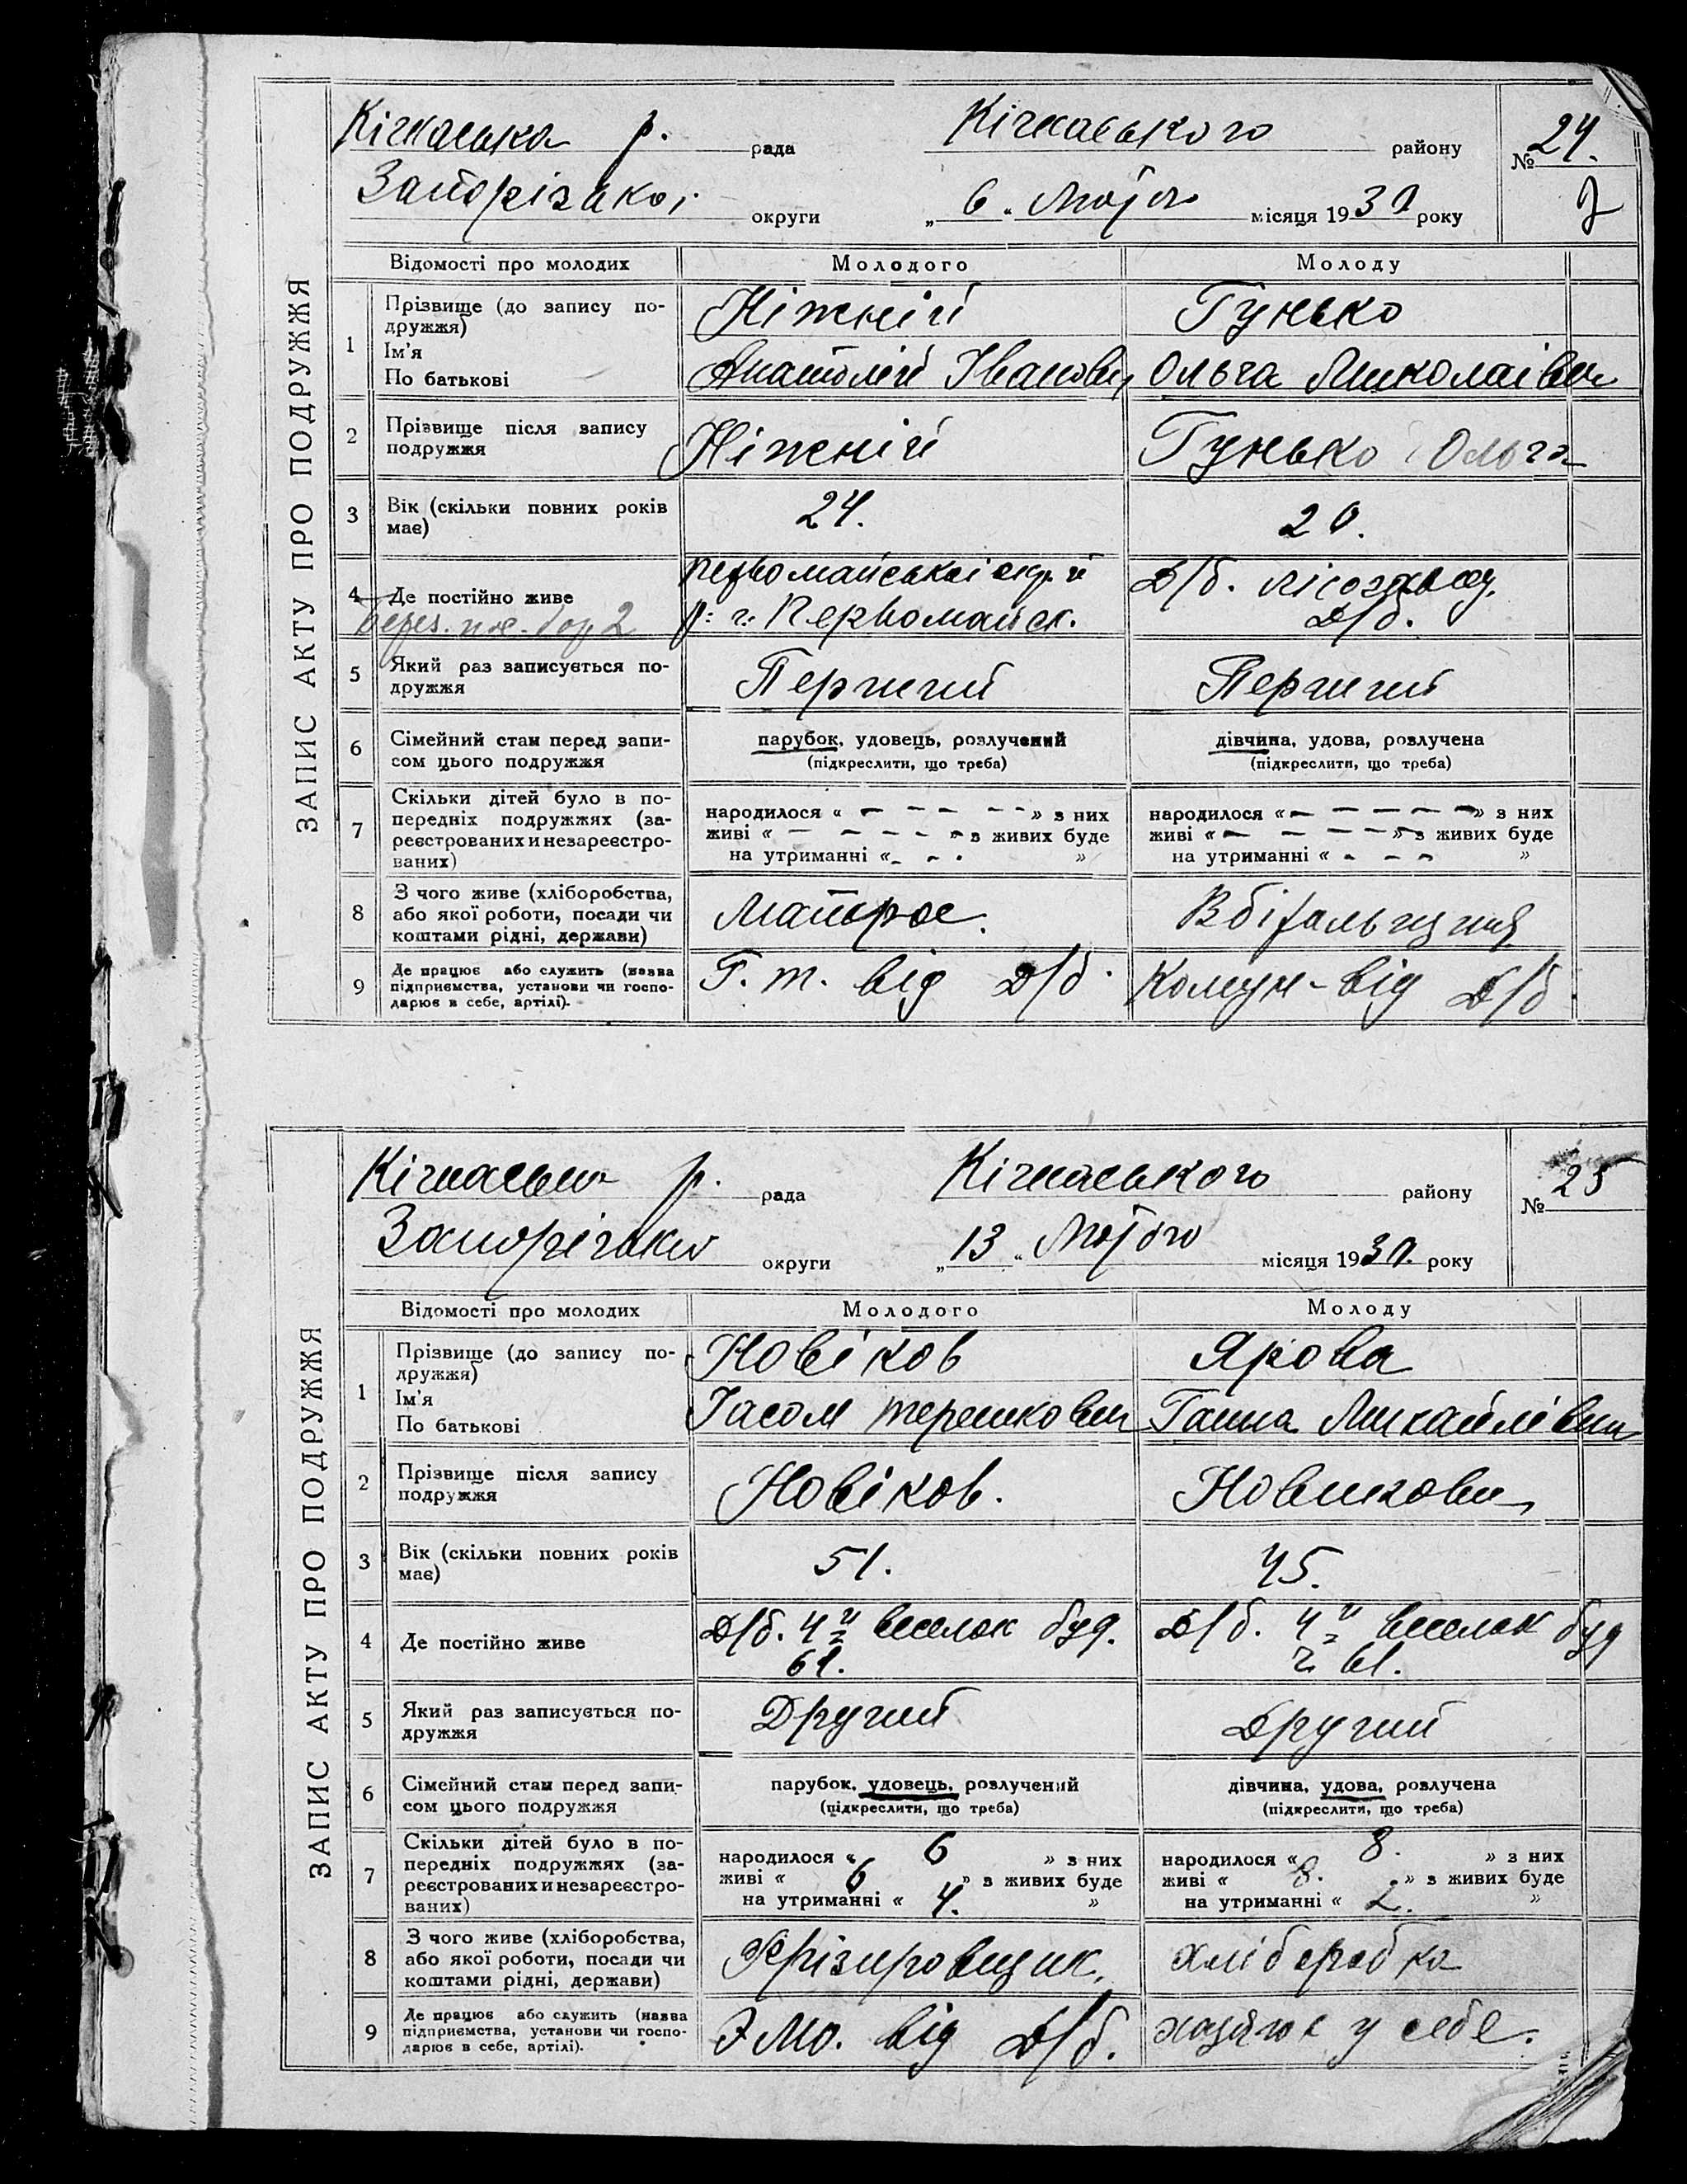 ЗАПИС АКТУ ПРО ПОДРУЖЖЯ
Кічкаська р. рада Кічкаського району № 24.
Запорізької округи „6“ Лютого місяця 1930 року
Відомості про молодих Молодого Молоду
1 Прізвище (до запису подружжя) Ніжній Гунько
Ім'я
По батькові Анатолій Іванович Ольга Миколаівна
2 Прізвище після запису подружжя Ніжній Гунько Ольга
3 Вік (скільки повних років має) 24. 20.
4 Де постійно живе Первомайської окр. Д/б.
р. г. Первомайск. Д/б.
5 Який раз записується подружжя Перший Перший
6 Сімейний стан перед записом цього подружжя парубок, удовець, розлучений дівчина, удова, розлучена
(підкреслити, що треба) (підкреслити, що треба)
7 Скільки дітей було в попередніх подружжях (зареєстрованих и незареєстрованих) народилося « — — — — » з них народилося « — — — — » з них
живі « — — — — » з живих буде живі « — — — — » з живих буде
на утриманні « — — — » на утриманні « — — — »
8 З чого живе (хліборобства, або якої роботи, посади чи коштами рідні, держави) Матрос.
9 Де працює або служить (назва підприємства, установи чи господарює в себе, артілі). Г. т. від Д/б. Комун-від Д/б.
ЗАПИС АКТУ ПРО ПОДРУЖЖЯ
р. рада Кічкаського району № 25
округи „13“ Лютого місяця 1930. року
Відомості про молодих Молодого Молоду
1 Прізвище (до запису подружжя) Новіков Ярова
Ім'я
По батькові Терешкович Ганна Михайлівна
2 Прізвище після запису подружжя Новіков. Новикова
3 Вік (скільки повних років має) 51. 45.
4 Де постійно живе Д/б. 4й веселок буд. Д/б. 4й веселок буд
61. 61.
5 Який раз записується подружжя Другий Другий
6 Сімейний стан перед записом цього подружжя парубок, удовець, розлучений дівчина, удова, розлучена
(підкреслити, що треба) (підкреслити, що треба)
7 Скільки дітей було в попередніх подружжях (зареєстрованих и незареєстрованих) народилося « 6 » з них народилося « 8. » з них
живі « 6 » з живих буде живі « 8. » з живих буде
на утриманні « 4. » на утриманні « 2. »
8 З чого живе (хліборобства, або якої роботи, посади чи коштами рідні, держави) Фрізировщик. хліборобка
9 Де працює або служить (назва підприємства, установи чи господарює в себе, артілі). від Д/б. у себе.